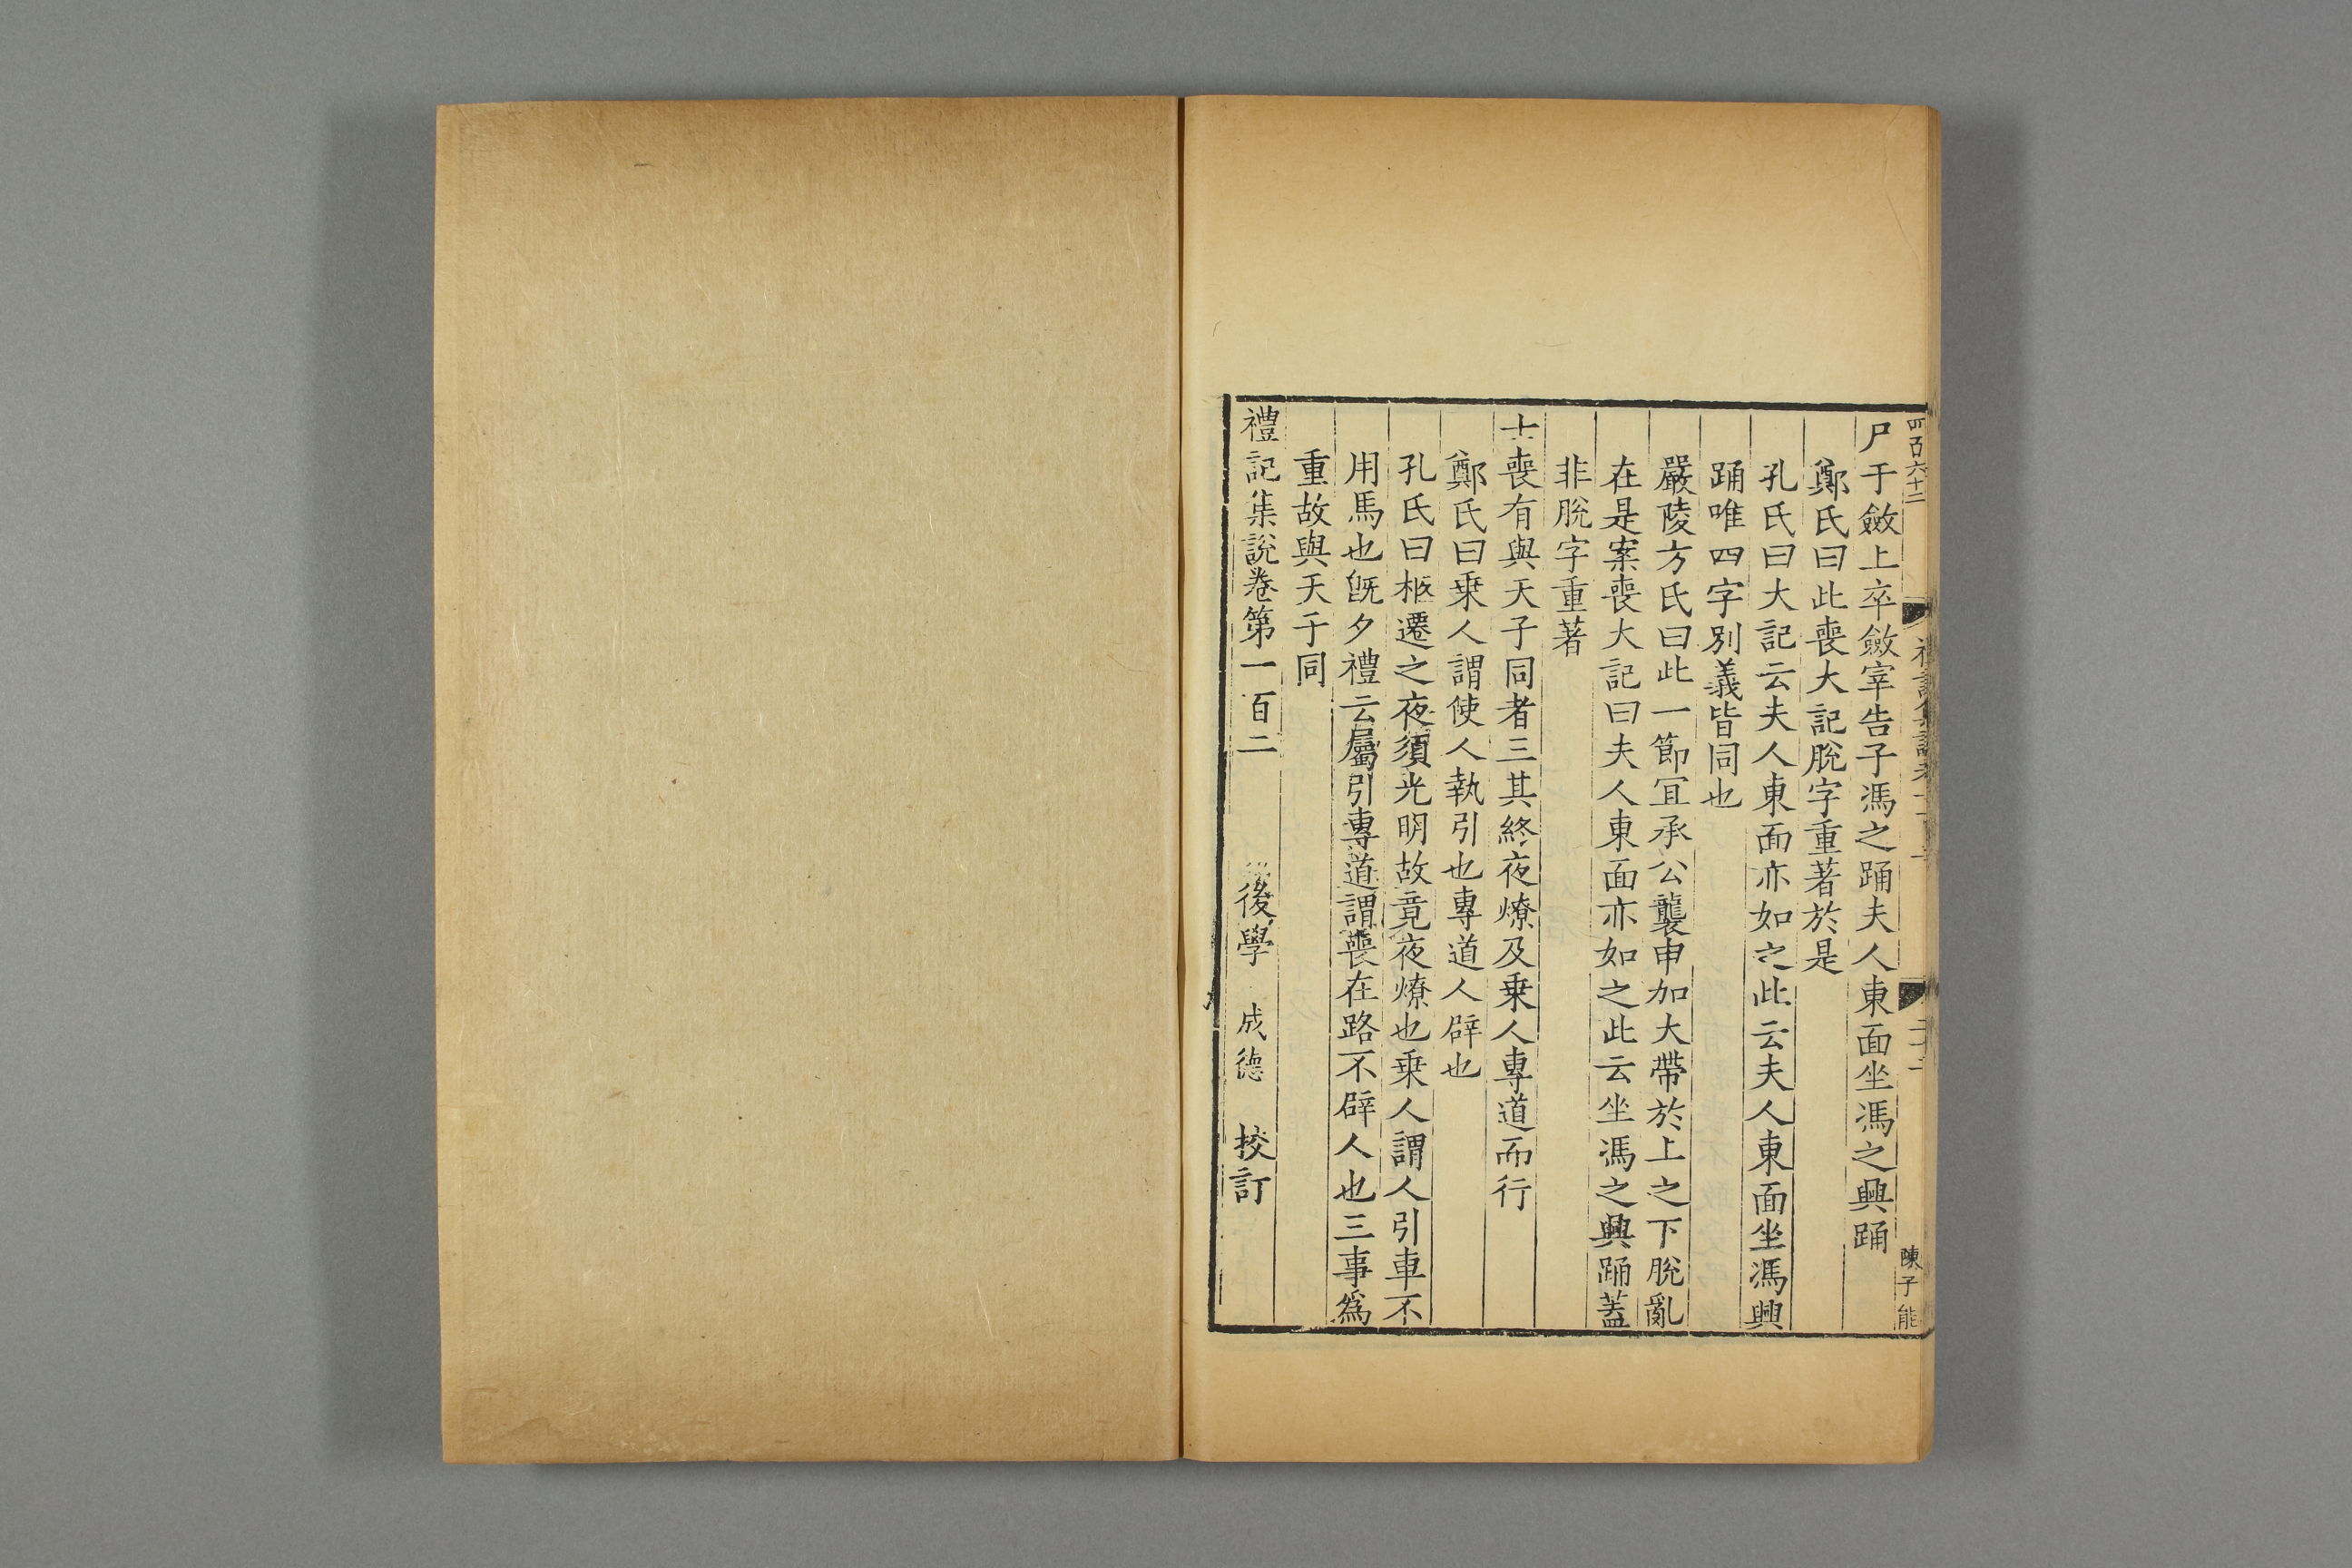 四百六十二
尸于斂上卒斂宰告子馮之踊夫人東面坐馮之興踊
鄭氏曰此喪大記脫字重著於是
孔氏曰大記云夫人東面亦如之此云夫人東面坐馮興
踊唯四字別義皆同也
嚴陵方氏曰此一節宜承公襲申加大帶於上之下脫亂
在是案喪大記曰夫人東面亦如之此云坐馮之興踊蓋
非脫字重著
士喪有與天子同者三其終夜燎及乗人專道而行
鄭氏曰乗人謂使人執引也專道人辟也
孔氏曰柩遷之夜須光明故竟夜燎也乗人謂人引車不
用馬也旣夕禮云屬引專道謂喪在路不辟人也三事爲
重故與天子同
禮記集說卷第一百二
後學 成德 挍訂
陳子能